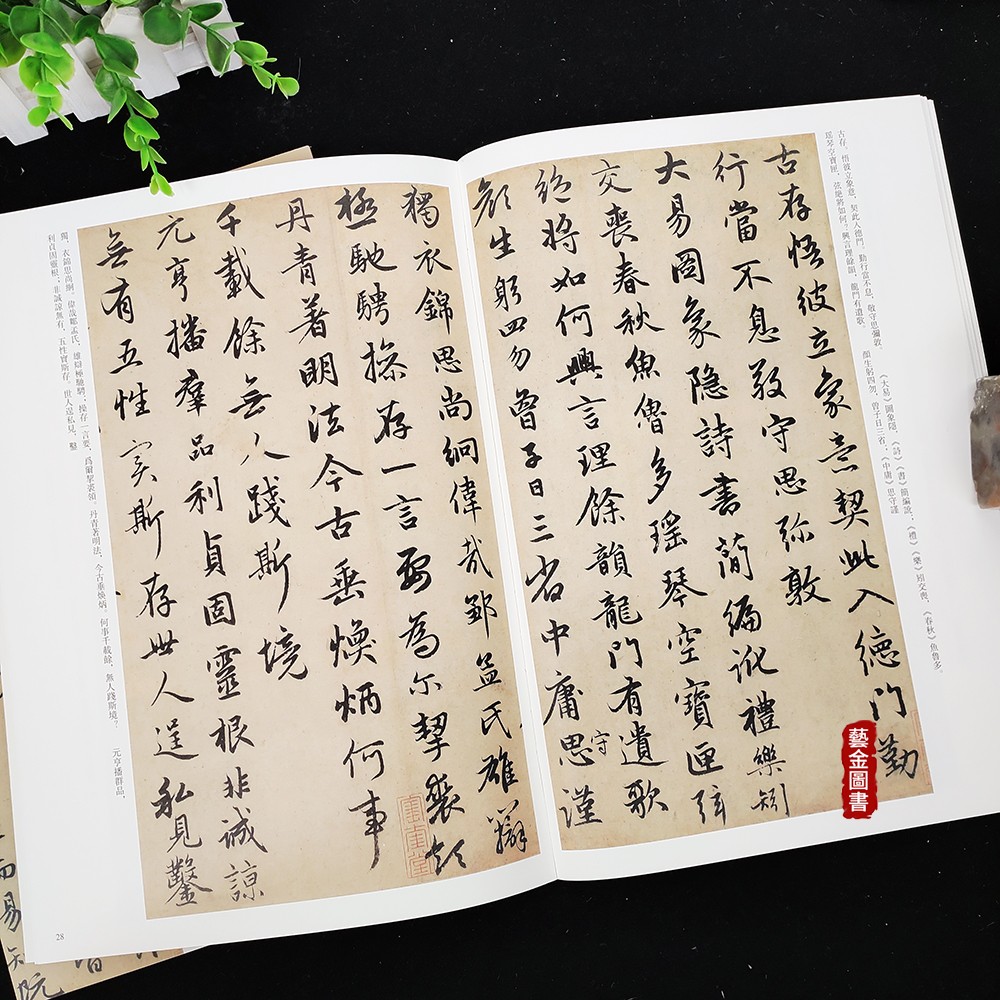 古存悟彼立象意契此入德門勤
行當不息敬守思弥敦
大易圖象隐詩書簡編訛禮樂矧
交喪春秋魚魯多瑶琴空寶匣弦
絶將如何興言理餘韻龍門有遺歌
顔生躬四勿曾子日三省中庸思守謹
獨衣錦思尚絅偉哉鄒孟氏雄辯
極馳騁操存一言要為尔挈裘領
丹青著明法今古垂煥炳何事
千載餘無人踐斯境
元亨播羣品利貞固靈根非誠諒
無有五性寔斯存世人逞私見鑿
古存。悟彼立象意,契此入德門。勤行當不息,敬守思彌敦。
《大易》圖象隱,《詩》《書》簡編訛,《禮》《樂》矧交喪,《春秋》魚魯多。
瑶琴空寶匣,弦絕將如何?興言理餘韻,龍門有遺歌。
顔生躬四勿,曾子日三省,《中庸》思守謹
獨,衣錦思尚絅。偉哉鄒孟氏,雄辯極馳騁,操存一言要,爲爾挈裘領。丹青著明法,今古垂煥炳。何事千載餘,無人踐斯境?
元亨播群品,
利貞固靈根;非誠諒無有,五性實斯存。世人逞私見,鑿
28
藝金圖書